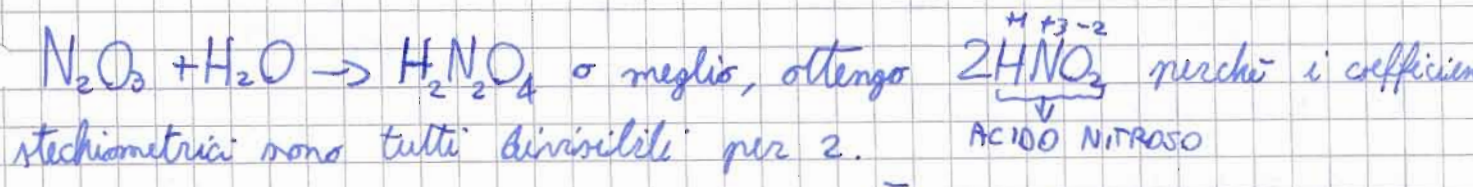 N₂O₃ + H₂O → H₂N₂O₄ o meglio, ottengo 2HNO₂ perché i coefficien
+1 +3 -2
stechiometrici sono tutti divisibili per 2.
ACIDO NITROSO